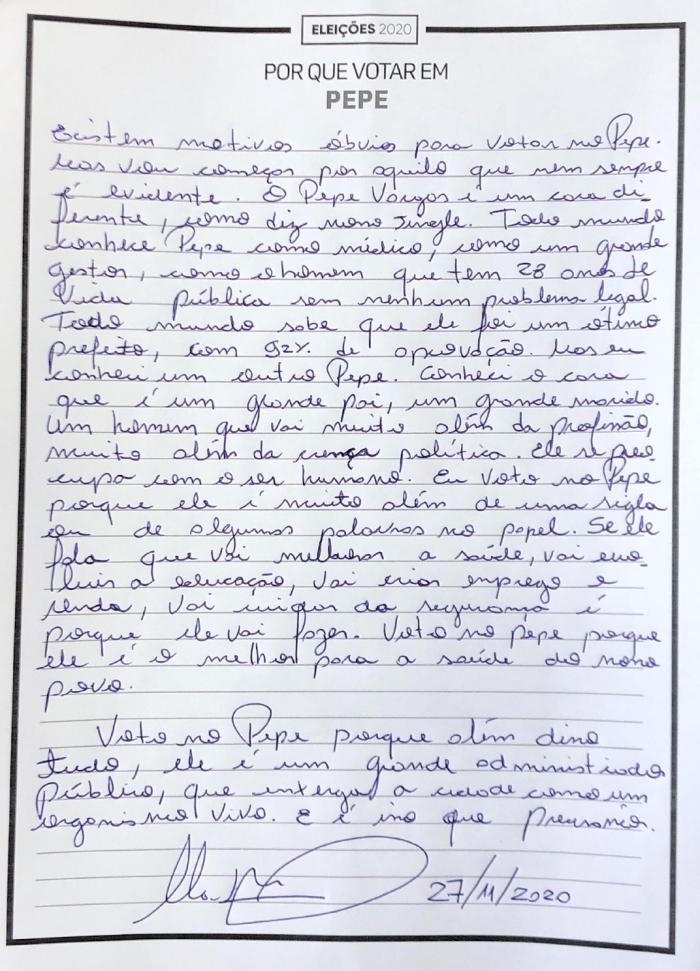 ELEIÇÕES 2020
POR QUE VOTAR EM
PEPE
Existem motivos óbvios para votar no Pepe.
Mas vou começar por aquilo que nem sempre
é evidente. O Pepe Vargas é um cara di-
ferente, como diz nosso Jingle. Todo mundo
conhece Pepe como médico, como um grande
gestor, como o homem que tem 28 anos de
vida pública sem nenhum problema legal.
Todo mundo sabe que ele foi um ótimo
prefeito, com 92% de aprovação. Mas eu
conheci um outro Pepe. Conheci o cara
que é um grande pai, um grande marido.
Um homem que vai muito além da profissão,
muito além da crença política. Ele se preo-
cupa com o ser humano. Eu voto no Pepe
porque ele é muito além de uma sigla
ou de algumas palavras no papel. Se ele
fala que vai melhorar a saúde, vai evo-
luir a educação, vai criar emprego e
renda, vai cuidar da segurança é
porque ele vai fazer. Voto no Pepe porque
ele é o melhor para a saúde do nosso
povo.
Voto no Pepe porque além disso
tudo, ele é um grande administrador
público, que enxerga a cidade como um
organismo vivo. E é isso que precisamos.
27/11/2020